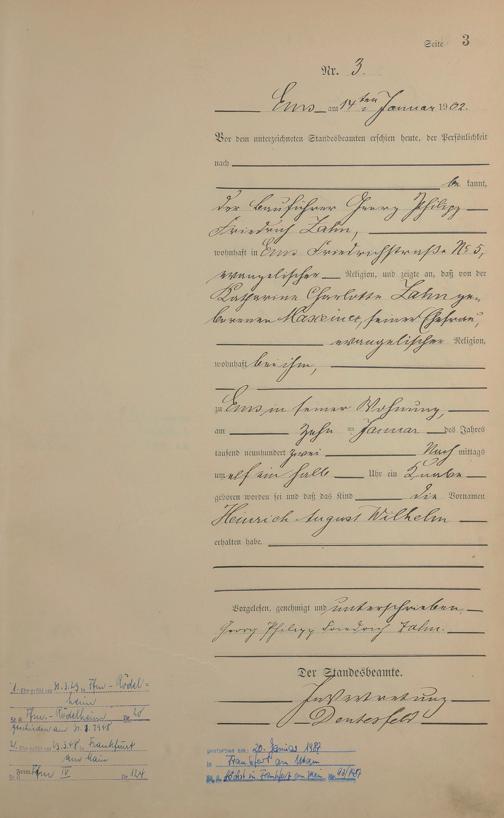 Seite 3
Nr. 3.
Ems am 14ten Januar 1902.
Vor dem unterzeichneten Standesbeamten erschien heute, der Persönlichkeit
nach
be kannt,
der Bauführer Georg Philipp
Friedrich Zahn,
wohnhaft in Ems Friedrichstraße No 5,
evangelischer Religion, und zeigte an, daß von der
Katharina Charlotte Zahn ge-
borenen seiner Ehefrau,
evangelischer Religion,
wohnhaft bei ihm,
zu Ems in seiner Wohnung,
am Zehn = Januar des Jahres
tausend neunhundert zwei Nach mittags
um elf ein halb Uhr ein Knabe
geboren worden sei und daß das Kind die Vornamen
Heinrich August Wilhelm
erhalten habe.
Vorgelesen, genehmigt und unterschrieben
Georg Philipp Friedrich Zahn.
Der Standesbeamte.
In Vertretung
1. 31.3.29 in Ffm-Rödel-
heim
Ffm.-Rödelheim Nr. 20
geschieden am 1948
2. in Frankfurt
am Main
Ffm IV Nr. 124
gestorben am: 20. Januar 1987
in Frankfurt am Main
Höchst in Frankfurt am Main Nr. 93/1987